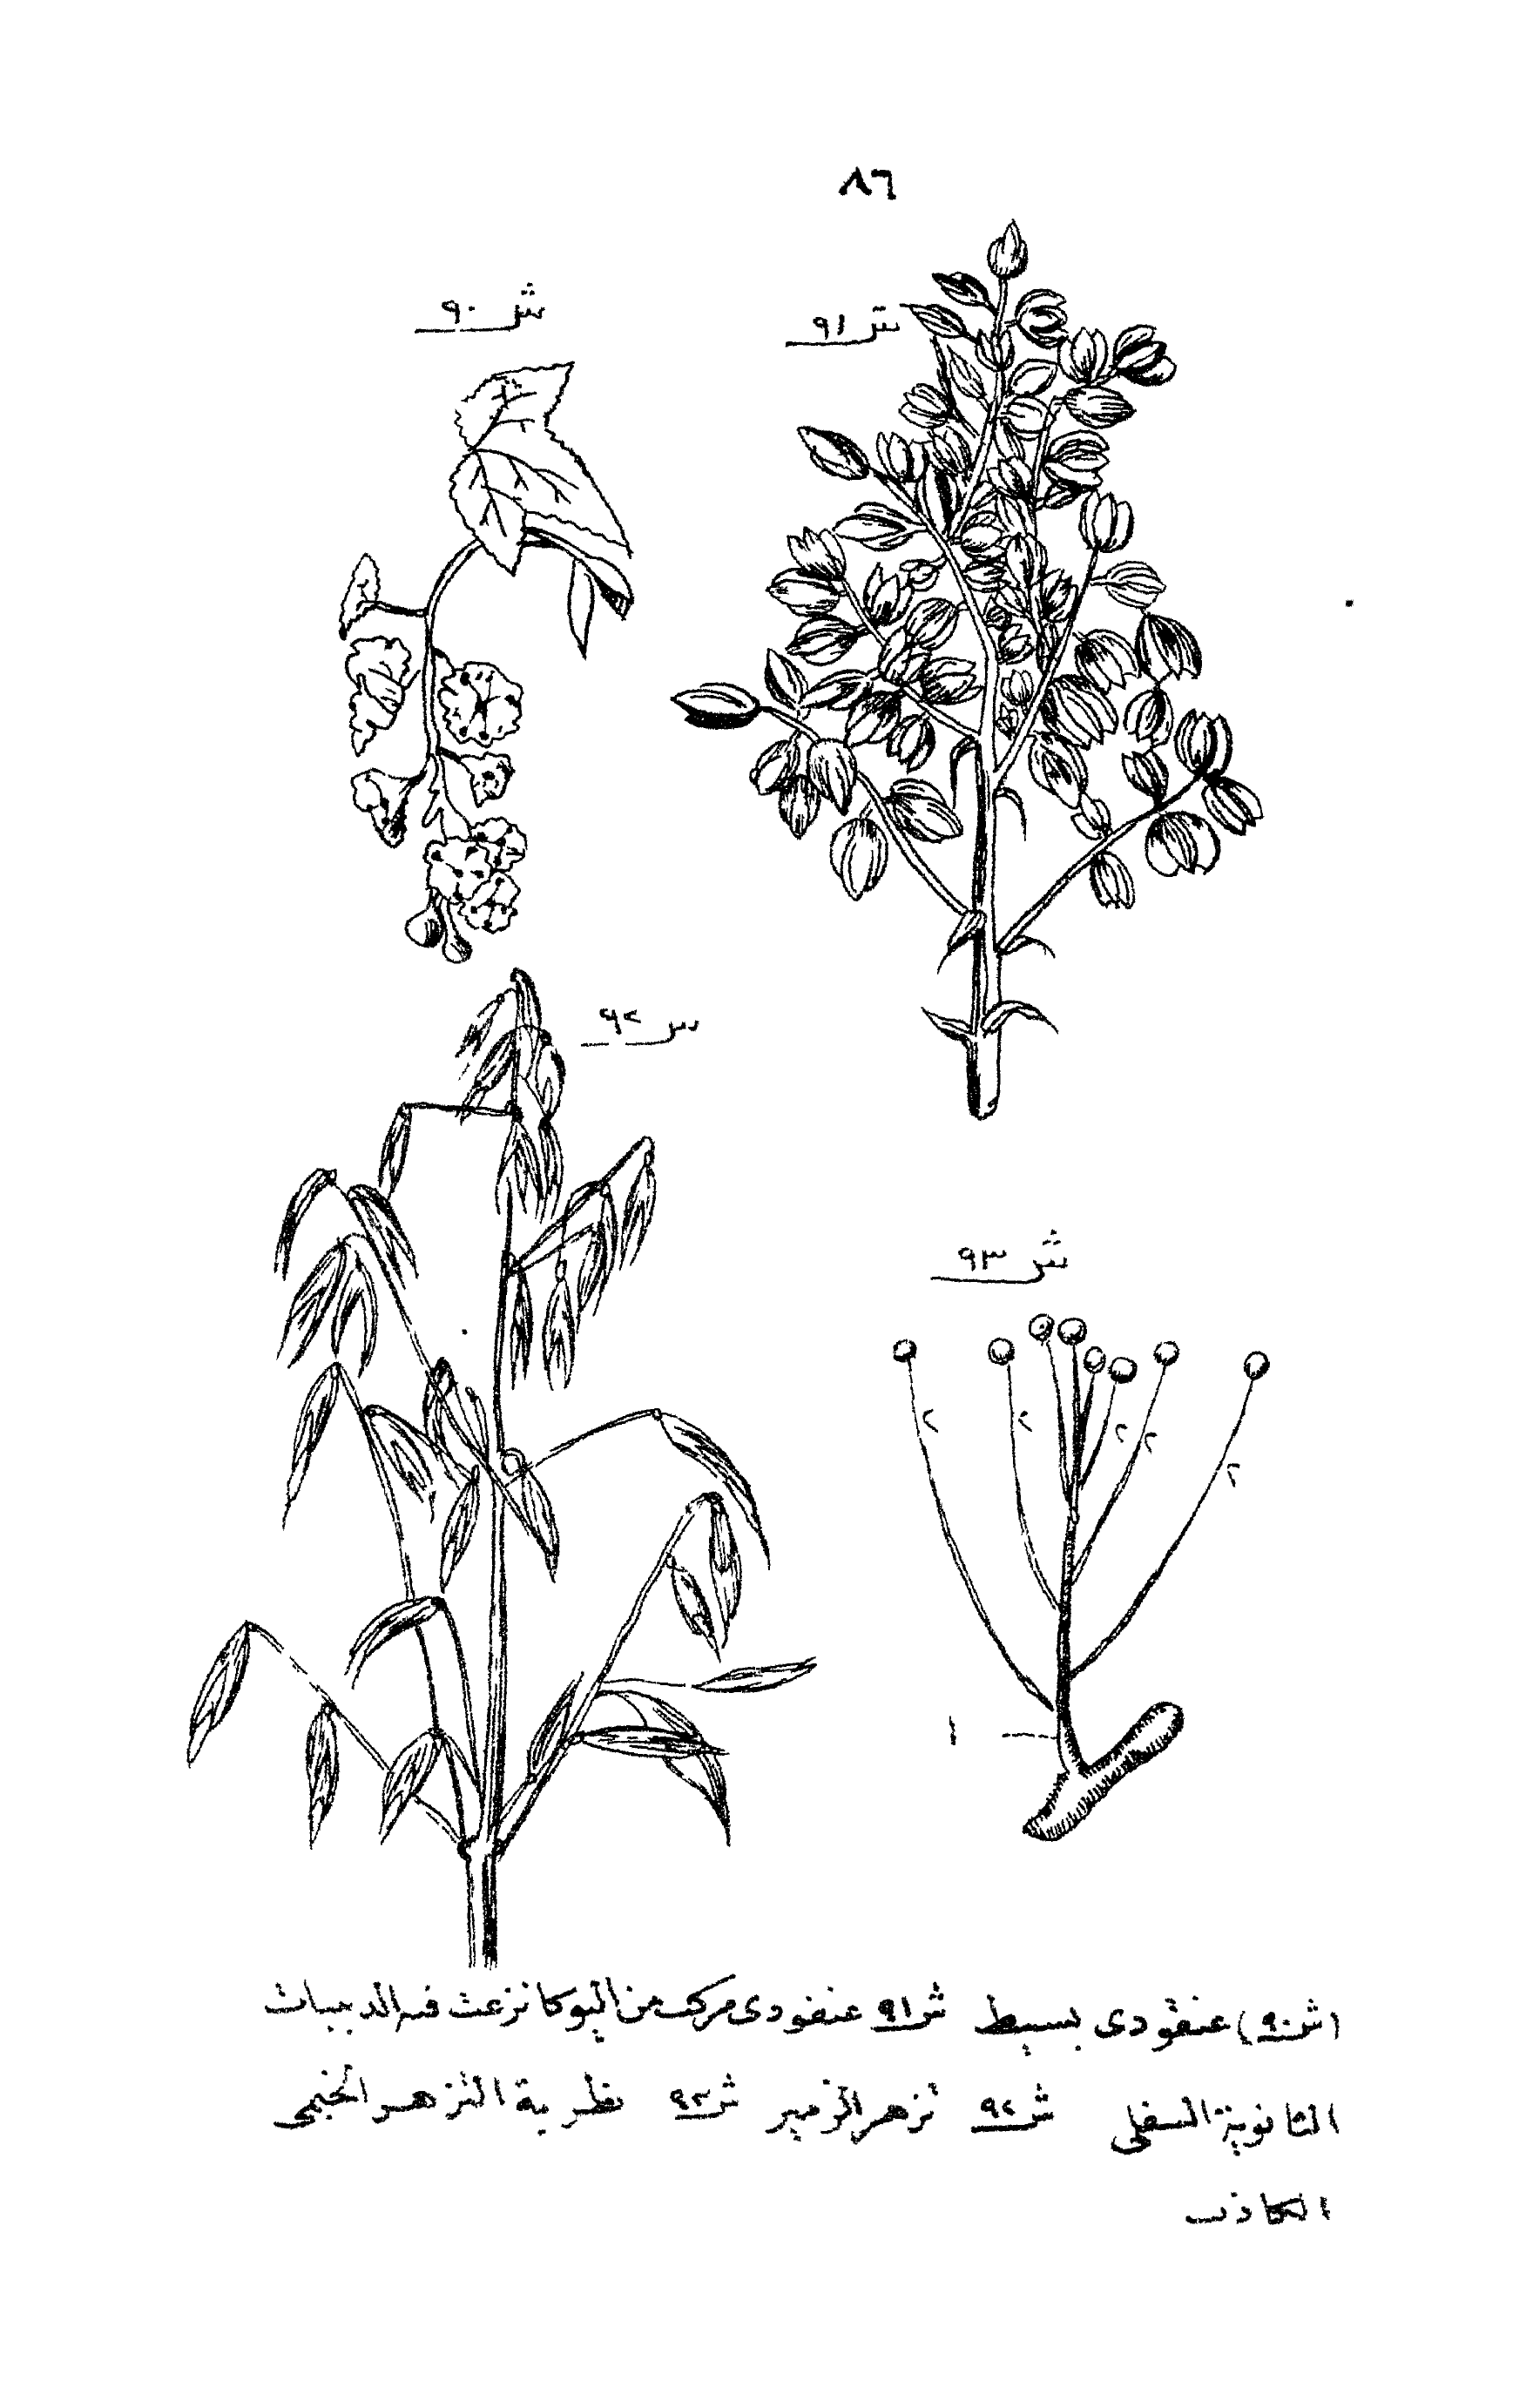 ٨٦
ش ٩٠
ش ٩١
ش ٩٢
ش ٩٣
٢ ٢ ٢ ٢ ٢
١
(ش ٩٠) عنقودى بسيط ش ٩١ عنقودى مركب من اليوكا نزعت فيه الذنيبات
الثانوية السفلى ش ٩٢ تزهر الزمير ش ٩٣ نظرية التزهر الخيمى
الكاذب